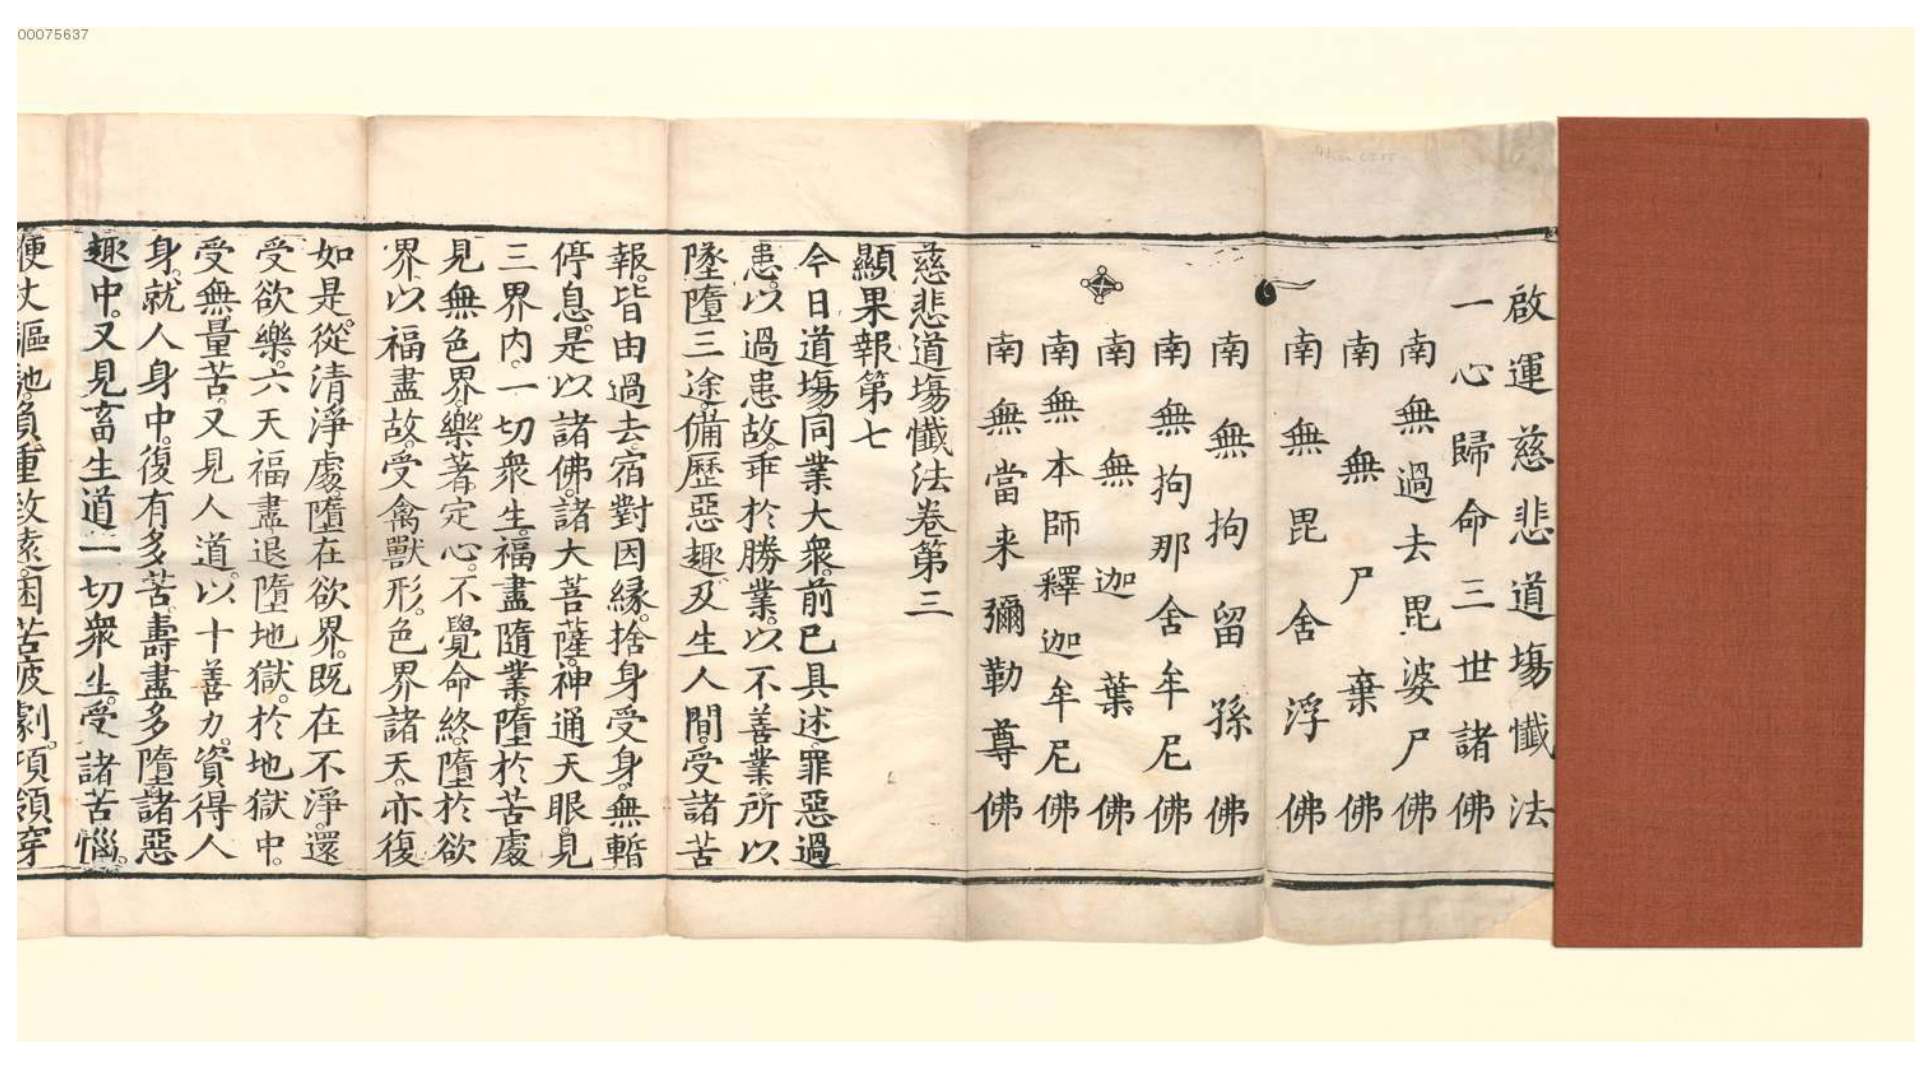 00075637
啟運慈悲道場懺法
一心歸命三世諸佛
南無過去毘婆尸佛
南無尸棄佛
南無毘舍浮佛
南無拘留孫佛
南無拘那舍牟尼佛
南無迦葉佛
南無本師釋迦牟尼佛
南無當来彌勒尊佛
慈悲道場懺法卷第三
顯果報第七
今日道場同業大衆。前已具述罪惡過
患。以過患故。乖於勝業。以不善業。所以
墜墮三途。備歷惡趣。及生人間。受諸苦
報。皆由過去宿對因緣。捨身受身。無暫
停息。是以諸佛。諸大菩薩。神通天眼。見
三界内。一切衆生。福盡隨業。墮於苦處
見無色界。樂著定心。不覺命終。墮於欲
界。以福盡故。受禽獸形。色界諸天。亦復
如是。從清淨處。墮在欲界。既在不淨。還
受欲樂。六天福盡。退墮地獄。於地獄中。
受無量苦。又見人道。以十善力。資得人
身。就人身中。復有多苦。壽盡多墮。諸惡
趣中。又見畜生道。一切衆生。受諸苦惱。
便杖驅馳。負重致遠。困苦疲劇。項領穿